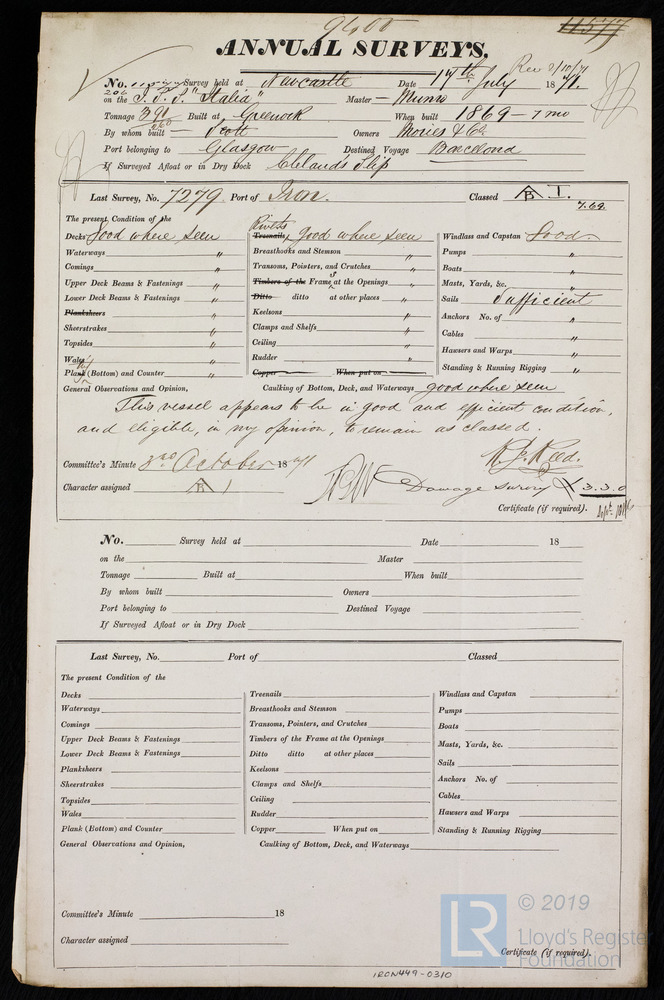 9400
11577
ANNUAL SURVEYS.
Rec 2/10/71
No. Survey held at Newcastle Date 17th July 1871.
on the S.S. "Italia" Master — Munro
Tonnage 391 Built at Greenock When built 1869 - 7 mo
260
By whom built — Scott Owners Mories & Co
Port belonging to Glasgow Destined Voyage Barcelona
If Surveyed Afloat or in Dry Dock Cleland's Slip
Last Survey, No. 7279 Port of Iron. Classed A B 1.
7.69
The present Condition of the
Decks Good where seen
Waterways "
Comings "
Upper Deck Beams & Fastenings "
Lower Deck Beams & Fastenings "
Planksheers
Sheerstrakes "
Topsides "
Wales "
Plank (Bottom) and Counter "
Rivets
Treenails, Good where seen
Breasthooks and Stemson "
Transoms, Pointers, and Crutches "
Timbers of the Frame at the Openings "
Ditto ditto at other places "
Keelsons "
Clamps and Shelfs "
Ceiling "
Rudder "
Copper When put on
Windlass and Capstan Good
Pumps "
Boats "
Masts, Yards, &c. "
Sails Sufficient
Anchors No. of "
Cables "
Hawsers and Warps "
Standing & Running Rigging "
General Observations and Opinion, Caulking of Bottom, Deck, and Waterways good where seen
This vessel appears to be in good and efficient condition,
and eligible, in my opinion, to remain as classed.
Committee's Minute 3rd October 1871
Character assigned A B 1
Damage survey £3.3.0
Certificate (if required).
No. Survey held at Date 18
on the Master
Tonnage Built at When built
By whom built Owners
Port belonging to Destined Voyage
If Surveyed Afloat or in Dry Dock
Last Survey, No. Port of Classed
The present Condition of the
Decks
Waterways
Comings
Upper Deck Beams & Fastenings
Lower Deck Beams & Fastenings
Planksheers
Sheerstrakes
Topsides
Wales
Plank (Bottom) and Counter
Treenails
Breasthooks and Stemson
Transoms, Pointers, and Crutches
Timbers of the Frame at the Openings
Ditto ditto at other places
Keelsons
Clamps and Shelfs
Ceiling
Rudder
Copper When put on
Windlass and Capstan
Pumps
Boats
Masts, Yards, &c.
Sails
Anchors No. of
Cables
Hawsers and Warps
Standing & Running Rigging
General Observations and Opinion, Caulking of Bottom, Deck, and Waterways
Committee's Minute 18
Character assigned
Certificate (if required).
LR © 2019
Lloyd's Register
Foundation
IRON449-0310